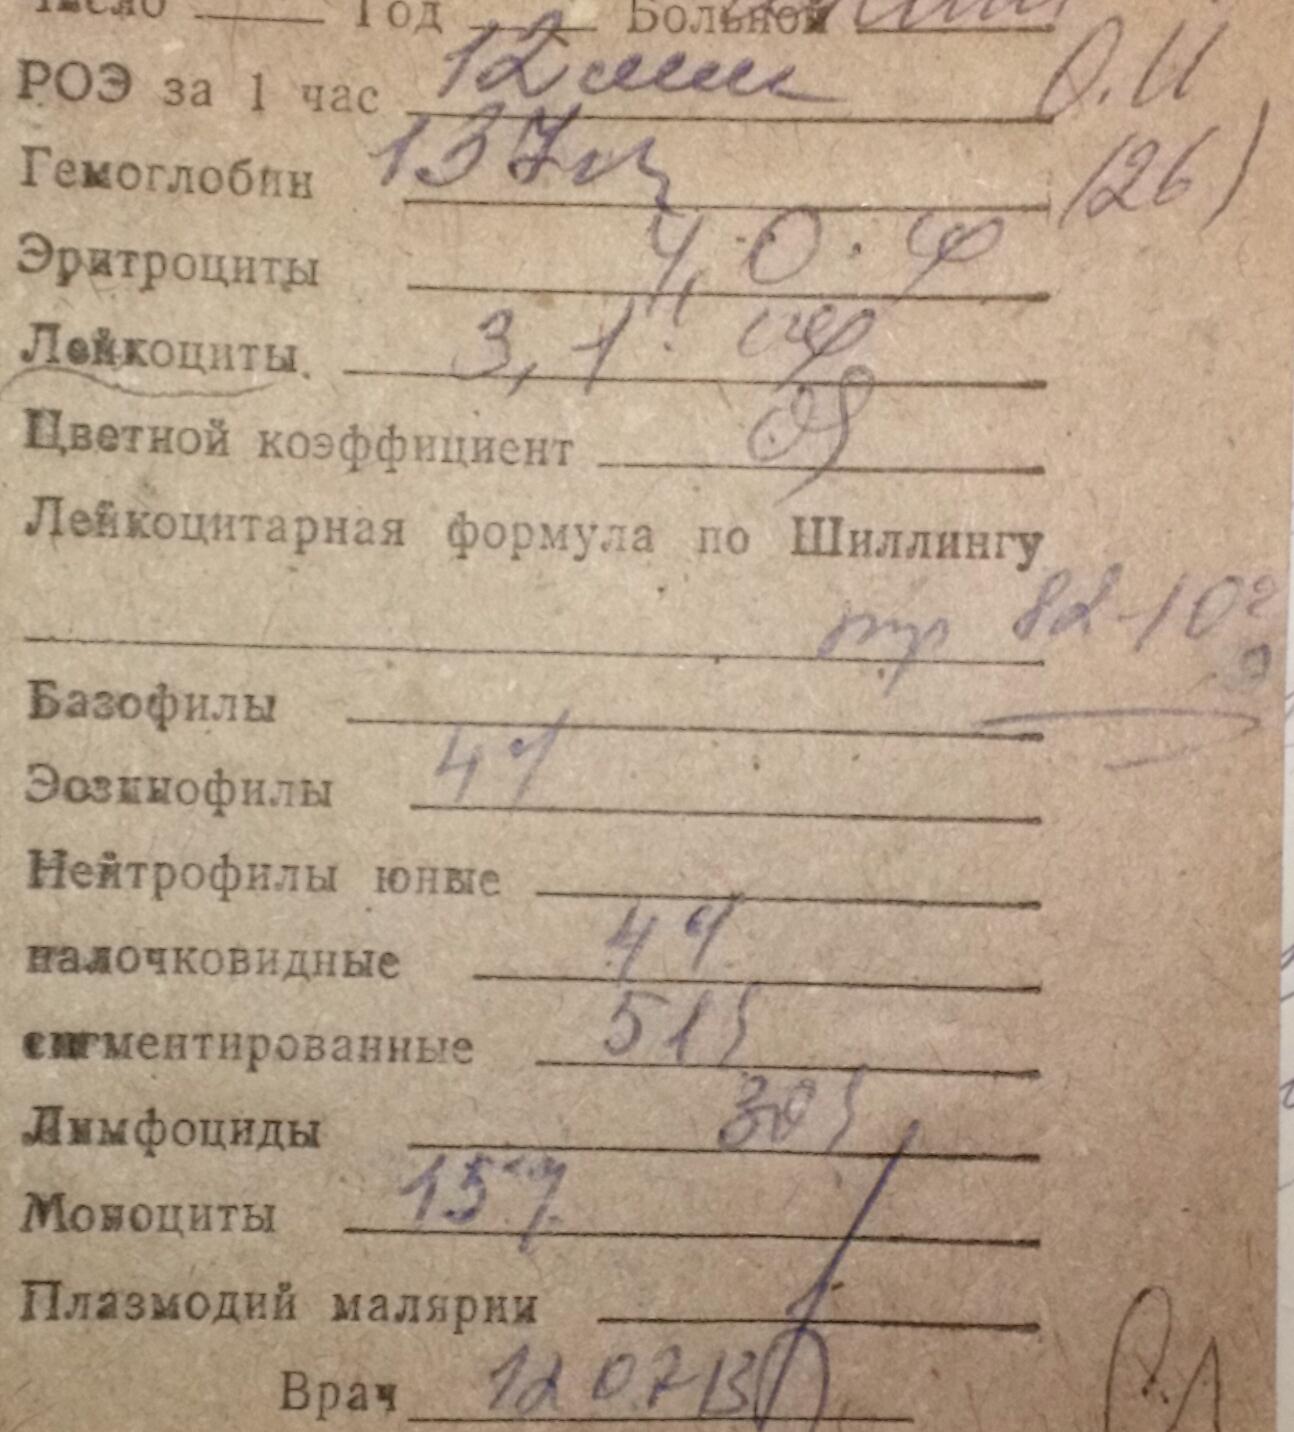 Число Год Больной
РОЭ за 1 час 12 мм О.И
Гемоглобин 137 (26)
Эритроциты 4,0
Лейкоциты 3,1
Цветной коэффициент
Лейкоцитарная формула по Шиллингу
тр 82-10
Базофилы
Эозинофилы 4%
Нейтрофилы юные
палочковидные 4%
сигментированные 51%
Лимфоциды 30%
Моноциты 15%
Плазмодий малярии
Врач 12 07 13